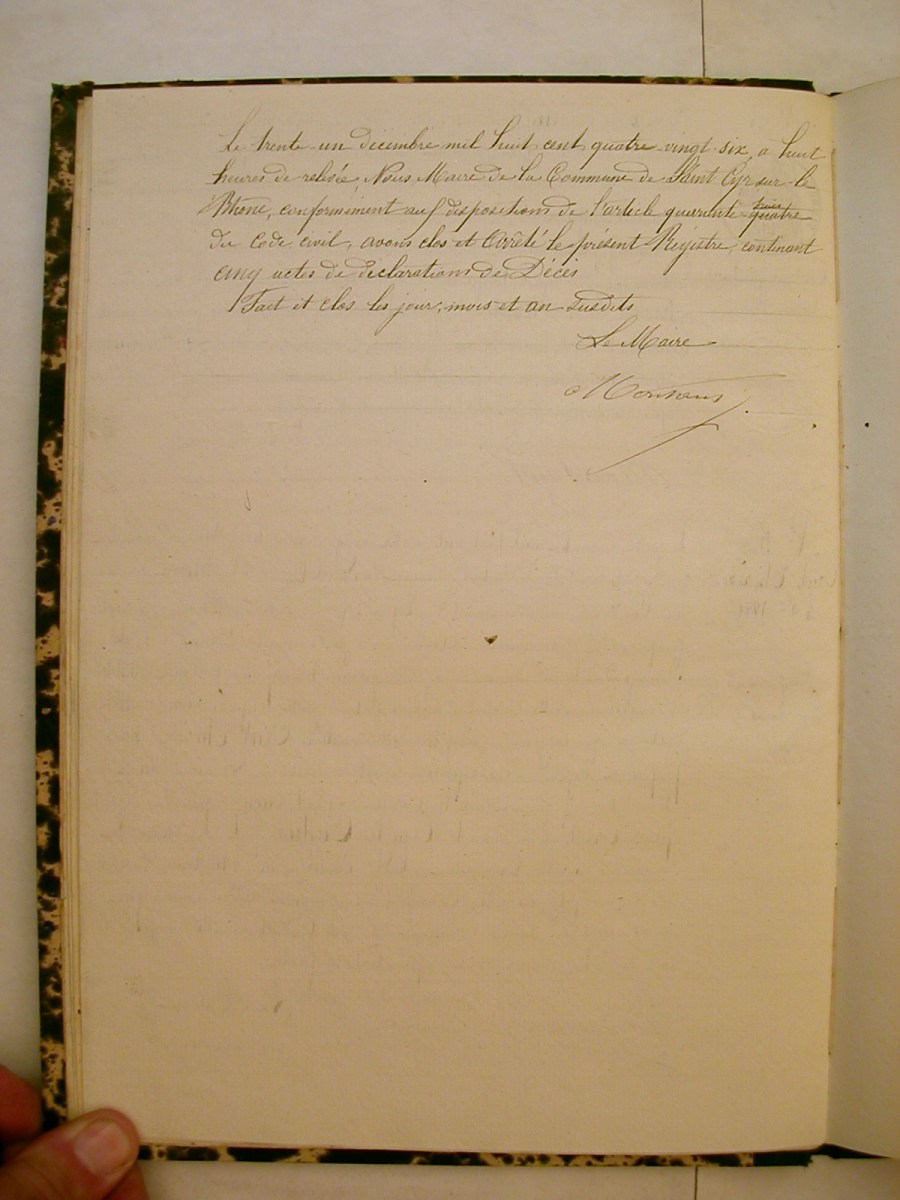 Le trente un décembre mil huit cent quatre-vingt-six, a huit
heures de relevée, Nous Maire de la Commune de Saint Cyr sur-le
Rhône, conformément aux dispositions de l'article quarante quatre trois
du Code civil, avons clos et Arrêté le présent Régistre, contenant
cinq actes de déclarations de Décès
Fait et clos les jour, mois et an susdits
Le Maire